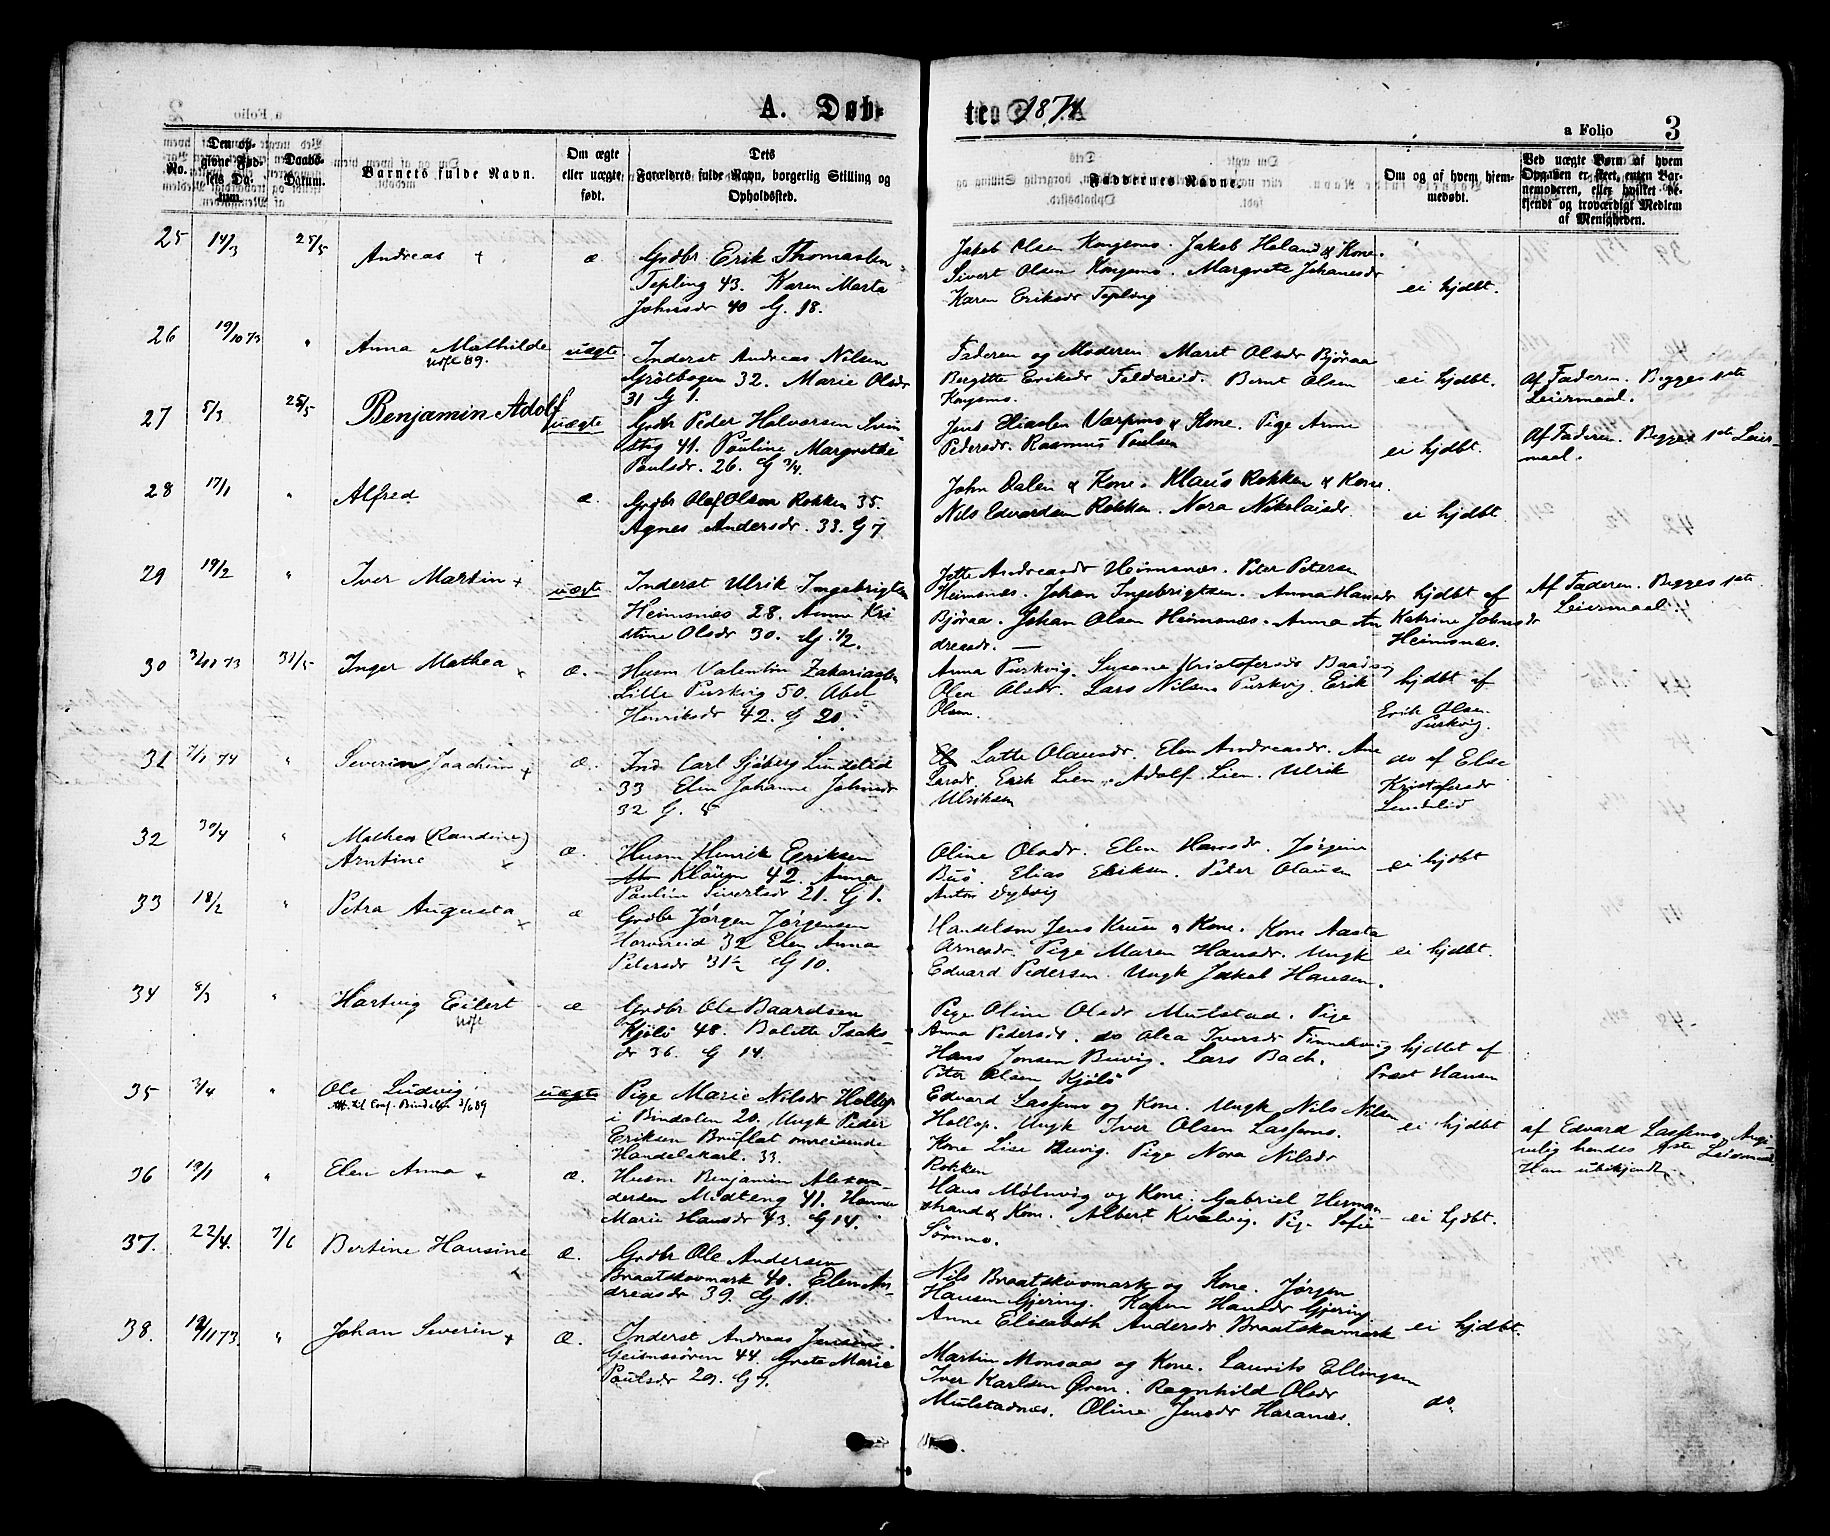 A. Døb-
ten 1874
a Folio 3
No.
Den op-
givne Fød-
sels Da-
tum.
Daabs-
Datum.
Barnets fulde Navn.
Om ægte
eller uægte
født.
Dets
Forældres fulde Navn, borgerlig Stilling og
Opholdssted.
Faddernes Navne.
Om og af hvem hjem-
medøbt.
Ved uægte Børn af hvem
Opgaven er skeet, enten Bar-
nemoderen, eller hvilket be-
kjendt og troværdigt Medlem
af Menigheden.
25 14/3 25/5 Andreas + æ
Grdbr Erik Thomassen
Tepling 43. Karen Marta
Johnsdr 40 G. 18.
Jakob Olsen Kongsmo. Jakob Haland & Kone.
Sivert Olsen Kongsmo. Margrete Johansdr
Karen Eriksdr Tepling
ei hjdbt.
26 19/10 73 " Anna Mathilde uægte
89.
Inderst Andreas Nilsen
Grötbogen 32. Marie Olsdr
31 G 1.
Faderen og Moderen. Maret Olsdr Björaa
Bergitte Eriksdr Feldereid. Bernt Olsen
Kongsmo.
ei hjdbt.
Af Faderen. Begges 1ste
Leiermaal.
27 5/3 25/5 Benjamin Adolf uægte
Grdbr Peder Halvorsen Svin
stig 41. Pauline Margrethe
Paulsdr. 26. G 3/4.
Jens Eliassen Varpmo & Kone. Pige Anne
Pedersdr. Rasmus Paulsen
ei hjdbt.
Af Faderen. Begges 1ste Leier-
maal.
28 17/1 " Alfred æ.
Grdbr Olaf Olsen Rokken 35.
Agnes Andersdr. 33. G 7.
John Dalen & Kone. Klaus Rokken & Kone.
Nils Edvardsen Rokken. Nora Nikolaisdr.
ei hjdbt.
29 19/2 " Iver Martin + uægte
Inderst Ulrik Ingebrigtsen
Heimsnæs 28. Anne Kri
stine Olsdr 30. G. 1/2.
Jette Andreasdr Heimsnæs. Peter Petersen
Heimsnæs. Johan Ingebrigtsen. Anna Hansdr
Björaa. Johan Olsen Heimsnæs. Anna An
dreasdr. —
hjdbt af
Katrine Johnsdr
Heimsnæs.
Af Faderen. Begges 1ste
Leiermaal.
30 3/11 73 31/5 Inger Mathea + æ.
Husm Valentin Zakariassen
Lille Purkvig 50. Abel
Henriksdr 42. G 20.
Anna Purkvig. Susane Kristofersdr
Olea Olsdr. Lars Nilsen Purkvig. Erik
Olsen.
hjdbt af
Erik Olsen
Purkvig.
31 7/1 74 " Severin Joachim + æ.
Ind Carl Sjöberg Lundelid
33 Elen Johanne Johnsdr
32 G. 5
Lotte Olausdr. Elen Andreasdr. Ane
Larsdr. Erik Lien. Adolf Lien. Ulrik
Ulriksen
do af Else
Kristofersdr
Lundelid
32 30/4 " Mathea (Randine)
Arntine + æ.
Husm Henrik Eriksen
Klöven 42. Anna
Pauline Sivertsdr 21. G 1.
Oline Olsdr. Elen Hansdr. Jørgine
Buö. Elias Eriksen. Peter Olausen
Anton Dybvig
ei hjdbt
33 18/2 " Petra Augusta + æ
Grdbr Jørgen Jørgensen
Horvereid 32 Elen Anna
Petersdr 31 1/2 G 10.
Handelsm Jens Kruse & Kone. Kone Aasta
Arnesdr. Pige Maren Hansdr. Ungk
Edvard Pedersen. Ungk Jakob Hansen.
ei hjdbt.
34 8/3 " Hartvig Eilert æ
Grdbr Ole Baardsen
Kjölö 48. Bolette Isaks-
dr 36. G 14.
Pige Oline Olsdr Mulstad. Pige
Anna Pedersdr. do Olea Iversdr Finnekvig
Hans Jonsen Buvig. Lars Bach.
Peter Olsen Kjölö
hjdbt af
Præst Hansen
35 3/4 " Ole Ludvig uægte
til Conf. Bindalen 3/6 89
Pige Marie Nilsdr Hollop
i Bindalen 20. Ungk Peder
Eriksen Bruflat omreisende
Handelskarl. 33.
Edvard Lassemo og Kone. Ungk Nils Nilsen
Hollop. Ungk Iver Olsen Lassemo.
Kone Lise Buvig. Pige Nora Nilsdr
Rokken
ei hjdbt
af Edvard Lassemo. Angi-
velig hendes første Leiermaal
Han ubekjendt.
36 19/1 " Elen Anna + æ.
Husm Benjamin Alexan-
dersen Midteng 41. Hanna
Marie Hansdr 43. G 14.
Hans Mölnvig og Kone. Gabriel Herman-
strand & Kone. Albert Kvalvig. Pige Sofie
Sörmo.
ei hjdbt.
37. 22/4. 7/6 Bertine Hansine + æ.
Grdbr Ole Andersen
Braatskovmark 40. Elen An-
dreasdr 39. G 11.
Nils Braatskovmark og Kone. Jørgen
Hansen Gjering. Karen Hansdr Gjering
Anne Elisabeth Andersdr Braatskovmark
ei hjdbt.
38. 12/11 73. " Johan Severin + æ.
Inderst Andreas Jensen
Geisnæsören 44. Grete Marie
Paulsdr 29. G 7.
Martin Monsaas og Kone. Laurits Ellingsen
Iver Karlsen Øren. Ragnhild Olsdr
Mulstadnæs. Oline Jensdr Haranæs.
do.